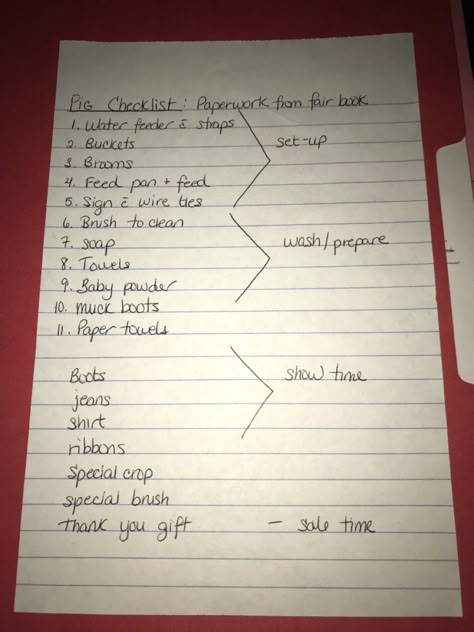 Pig Checklist: Paperwork from fair book
1. Water feeder c̄ straps
2. Buckets
3. Brooms
4. Feed pan + feed
5. Sign c̄ wire ties
set-up
6. Brush to clean
7. Soap
8. Towels
9. Baby powder
10. muck boots
11. Paper towels
wash/prepare
Boots
jeans
shirt
ribbons
Special crop
special brush
show time
thank you gift - sale time